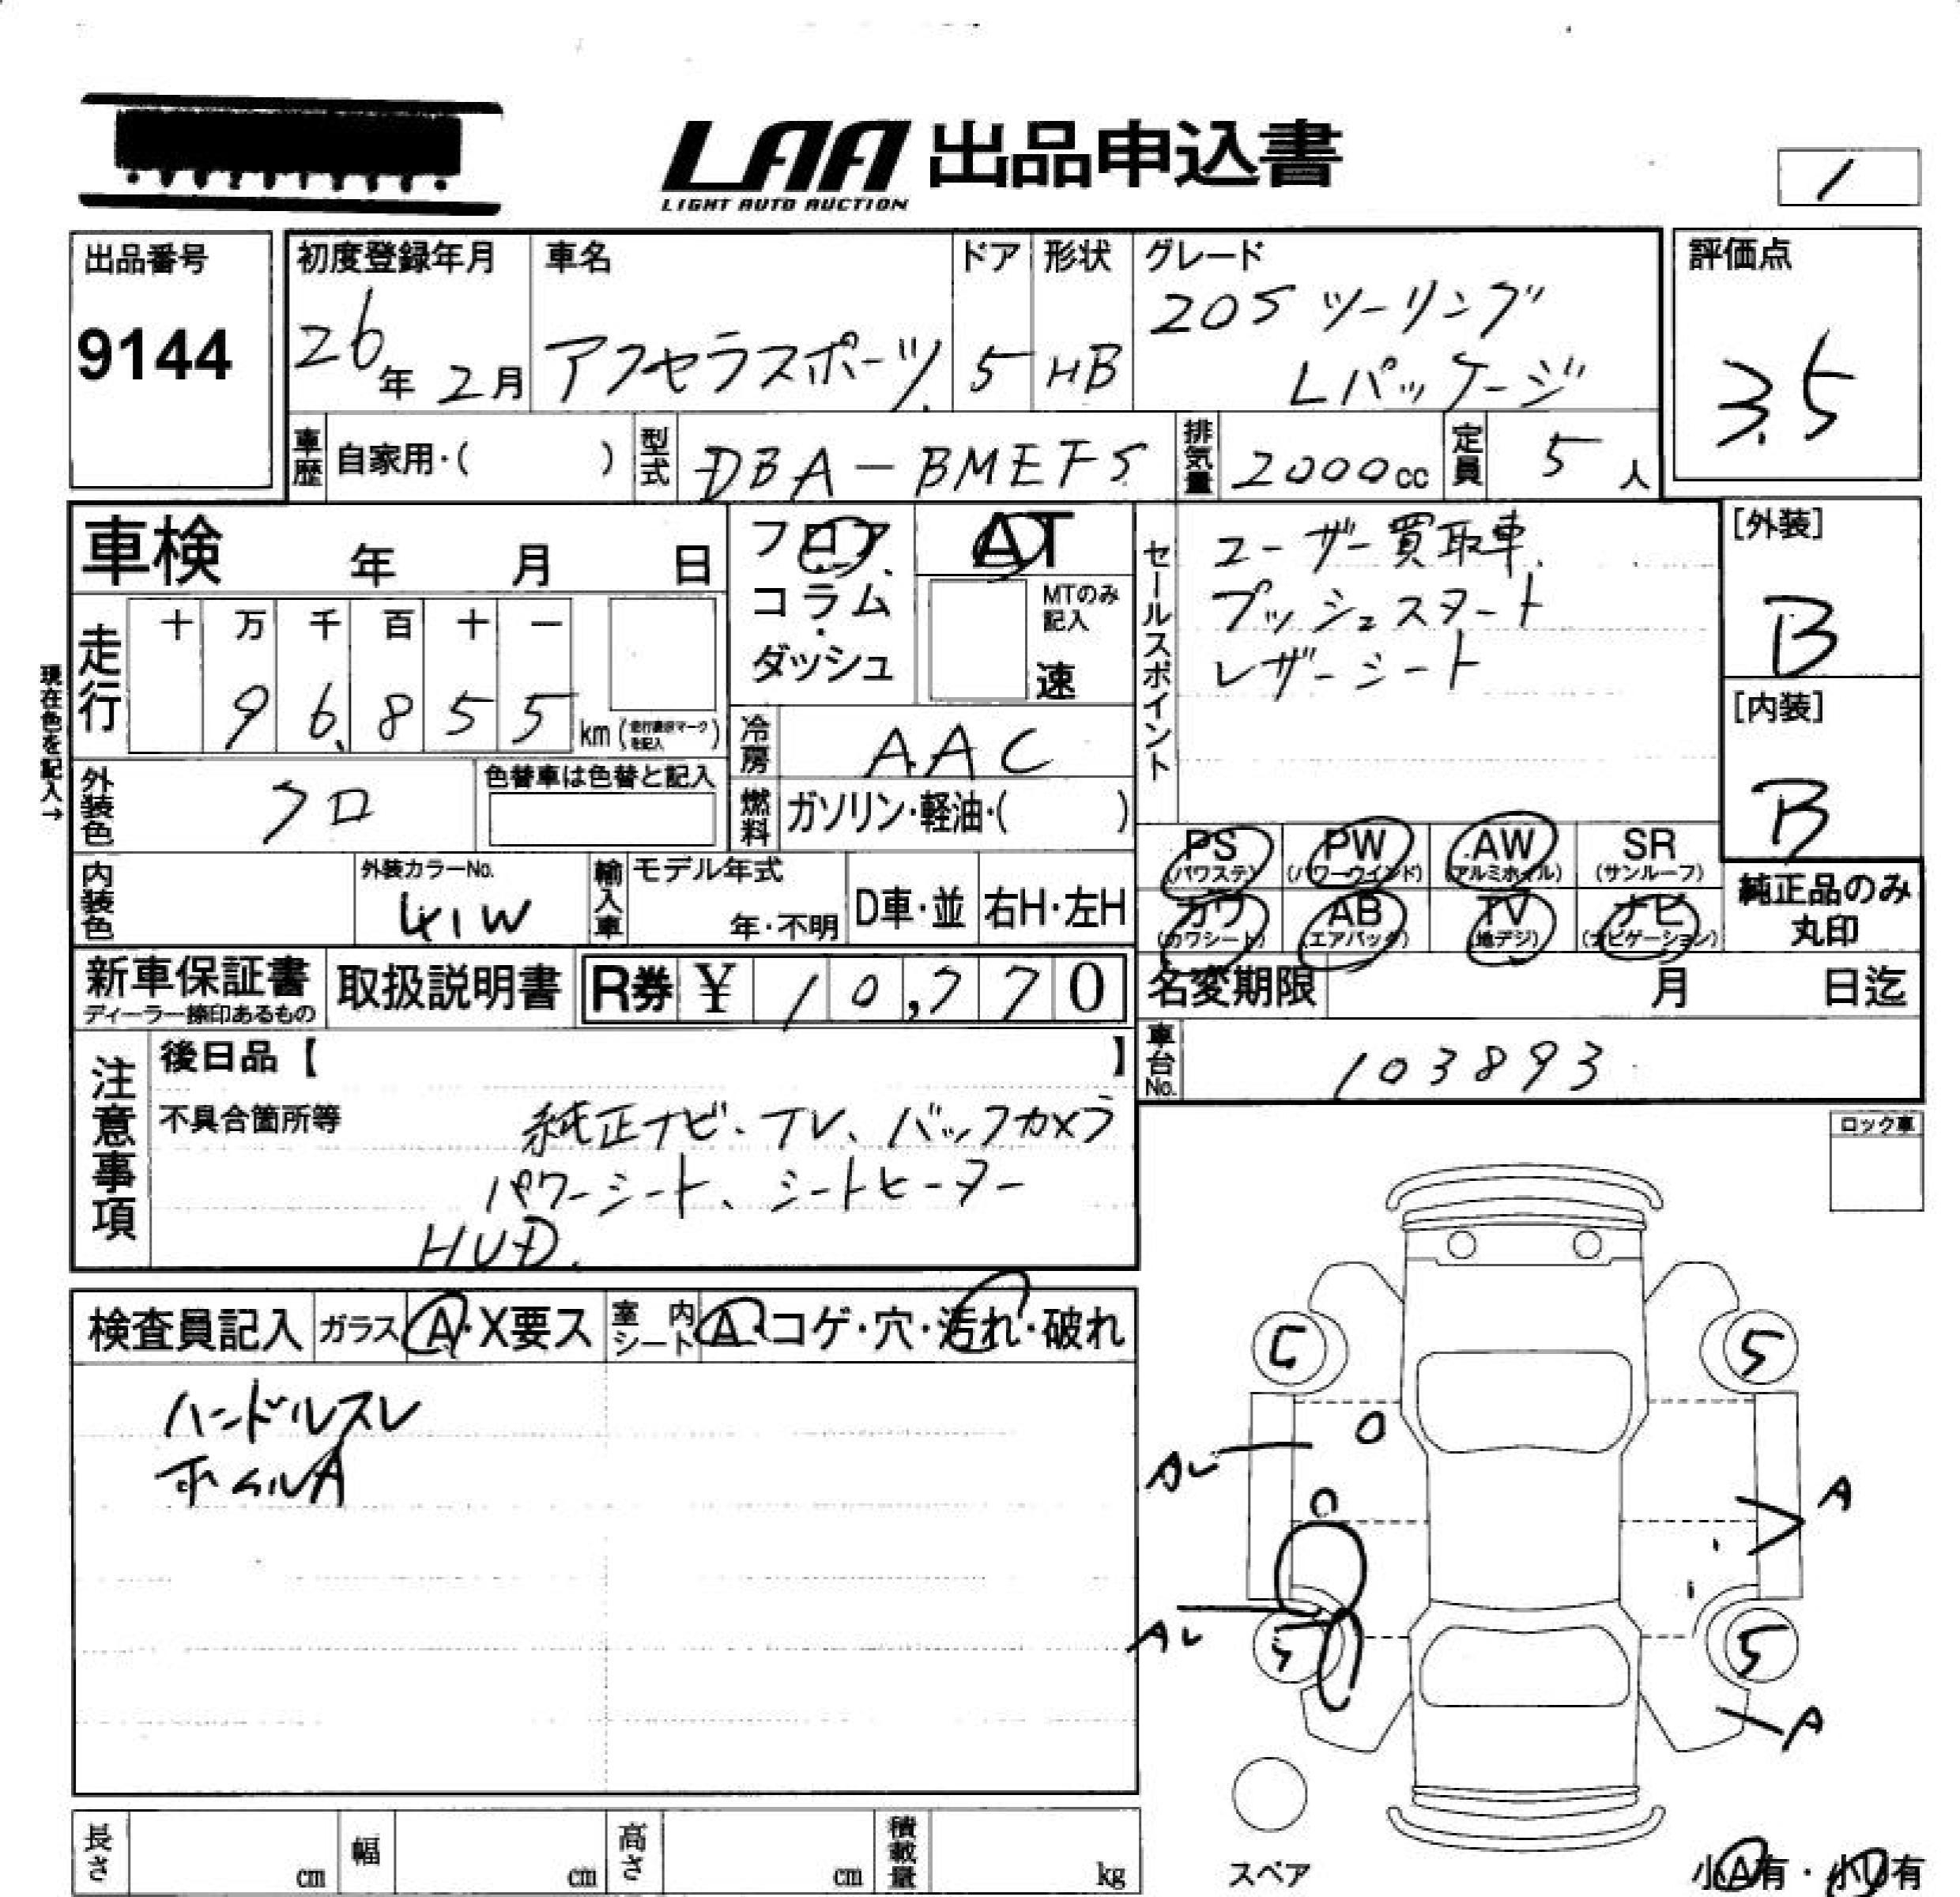 LAA 出品申込書
LIGHT AUTO AUCTION
1
出品番号
9144
初度登録年月
26年 2月
車名
アクセラスポーツ
ドア
5
形状
HB
グレード
20S ツーリング
Lパッケージ
評価点
3.5
車歴 自家用・( )
型式 DBA-BMEFS
排気量 2000cc
定員 5人
車検 年 月 日
フロア
・
コラム
・
ダッシュ
AT
MTのみ
記入
速
セールスポイント
ユーザー買取車.
プッシュスタート
レザーシート
[外装]
B
[内装]
B
現在色を記入→
走行
十 万 千 百 十 一
9 6, 8 5 5 km
冷房 AAC
燃料 ガソリン・軽油・( )
外装色 クロ
色替車は色替と記入
内装色
外装カラーNo.
41W
輸入車
モデル年式
年・不明
D車・並
右H・左H
PS
(パワステ)
PW
(パワーウインド)
AW
(アルミホイル)
SR
(サンルーフ)
カワ
(カワシート)
AB
(エアバッグ)
TV
(地デジ)
ナビ
(ナビゲーション)
純正品のみ
丸印
新車保証書
ディーラー捺印あるもの
取扱説明書
R券 ¥ 10,770
名変期限 月 日迄
車台No. 103893
注意事項
後日品【 】
不具合箇所等
純正ナビ、TV、バックカメラ
パワーシート、シートヒーター
HUD.
ロック車
検査員記入
ガラス A・X要ス
室内シート A・コゲ・穴・汚れ・破れ
ハンドルスレ
ホイルA
5
5
AU
A
AU
5
5
A
スペア
小A有・小U有
長さ cm
幅 cm
高さ cm
積載量 kg